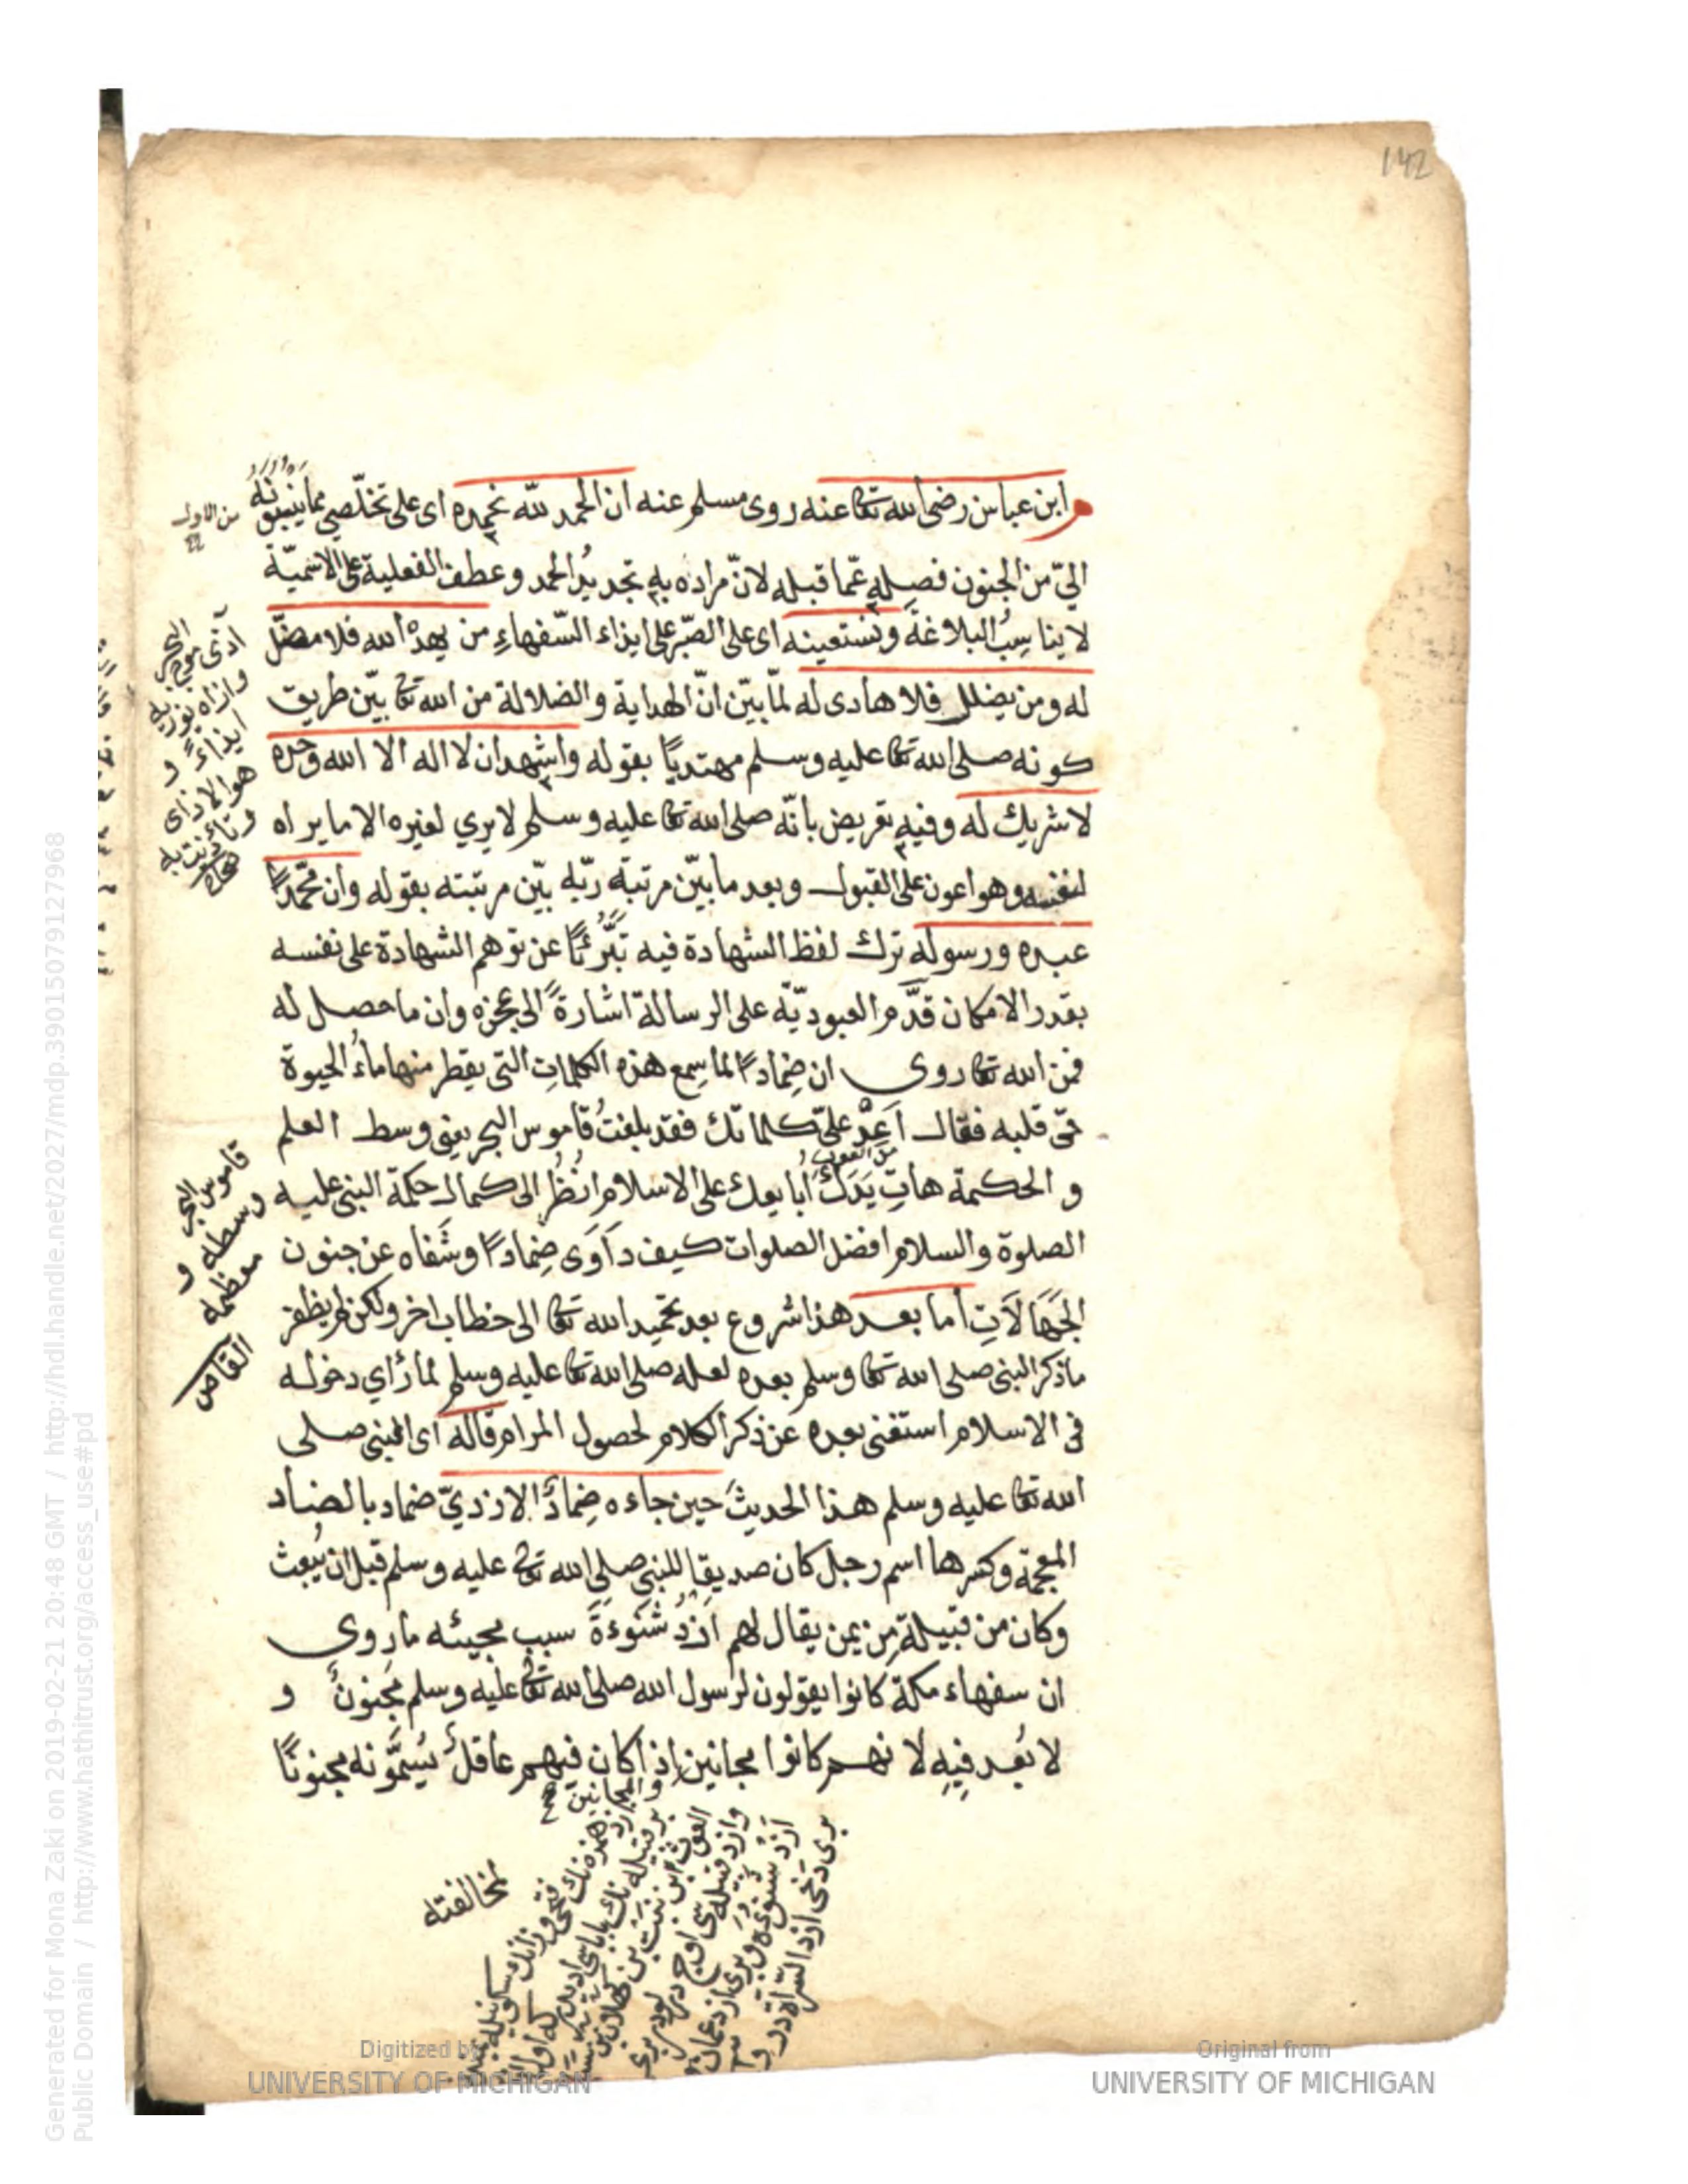 142
ابن عباس رضى الله تعا عنه روى مسلم عنه ان الحمد لله نحمده اى على تخلّصى مما ينسبونه
الىّ من الجنون فصله عمّا قبله لانّ مراده به تجديدُ الحمد وعطف الفعلية على الاسميّة
لا يناسبُ البلاغة ونستعينه اى على الصّبر على ايذاء السّفهاءِ من يهدْه الله فلا مضلّ
له ومن يضلل فلا هادى له لمّا بيّن انّ الهداية والضلالة من الله تعا بيّن طريق
كونه صلى الله تعا عليه وسلم مهتديًا بقوله واشهد ان لا اله الا الله وحده
لا شريك له وفيه تعريض بانّه صلى الله تعا عليه وسلم لا يرى لغيره الا ما يراه
لنفسه وهو اعون على القبول وبعد ما بيّن مرتبة ربّه بيّن مرتبته بقوله وان محمّدًا
عبده ورسوله ترك لفظ الشهادة فيه تبرُّئًا عن توهم الشهادة على نفسه
بقدر الامكان قدَّم العبوديّة على الرسالة اشارةً الى عجزه وان ما حصل له
فمن الله تعا روى ان ضِمادًا لما سمع هذه الكلماتِ التى يقطر منها ماءُ الحيوة
فى قلبه فقال اَعِدْ علىّ كلماتك فقد بلغتُ قاموس البحر يعنى وسط العلم
والحكمة هاتِ يَدَكَ ابايعك على الاسلام اُنظُر الى كمال حكمة النبى عليه
الصلوة والسلام افضل الصلوات كيف دَاوَى ضِمادًا وشَفاه عن جنون
الجَهَالَاتِ اما بعد هذا شروع بعد تحميد الله تعا الى خطاب اخر ولكن لم يظفر
ما ذكر النبى صلى الله تعا وسلم بعده لعله صلى الله تعا عليه وسلم لما رَاى دخوله
فى الاسلام استغنى بعده عن ذكر الكلام لحصول المرام قاله اى النبى صلى
الله تعا عليه وسلم هذا الحديثَ حين جاءه ضِمادٌ الازدىّ ضماد بالضاد
المعجمة وكسرها اسم رجل كان صديقا للنبى صلى الله تعا عليه وسلم قبل ان يُبعث
وكان من قبيلةٍ من يمن يقال لهم ازدُ شَنُوءَةَ سبب مجيئه ما روى
ان سفهاء مكة كانوا يقولون لرسول الله صلى الله تعا عليه وسلم مجنونٌ و
لا بُعد فيه لانهم كانوا مجانين اذا كان فيهم عاقلٌ يُسَمُّونه مجنونًا
من الاول
اذى
ايذاءً و
قاموس البحر
وسطه و
معظمه
والمجانين
نخالفته
Generated for Mona Zaki on 2019-02-21 20:48 GMT / http://hdl.handle.net/2027/mdp.39015079127968
Public Domain / http://www.hathitrust.org/access_use#pd
Digitized by
UNIVERSITY OF MICHIGAN
Original from
UNIVERSITY OF MICHIGAN